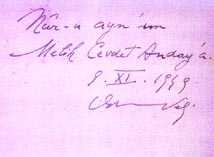 Nûr-u ayn'ım
Melih Cevdet Anday'a.
9. XI. 1949